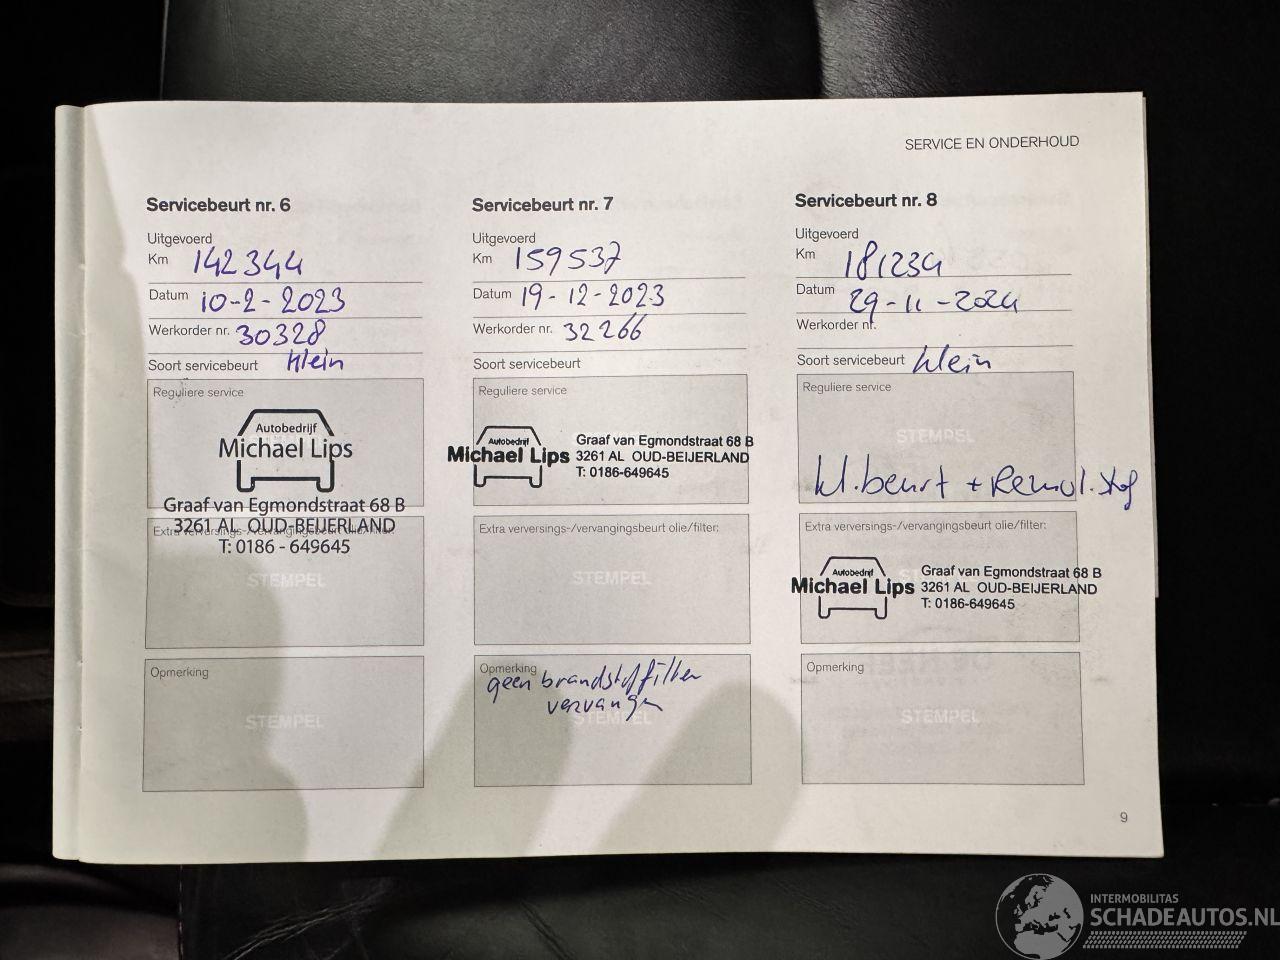 SERVICE EN ONDERHOUD
Servicebeurt nr. 6
Uitgevoerd
Km 142344
Datum 10-2-2023
Werkorder nr. 30328
Soort servicebeurt klein
Reguliere service
Autobedrijf
Michael Lips
Graaf van Egmondstraat 68 B
3261 AL OUD-BEIJERLAND
Extra verversings-/vervangingsbeurt olie/filter:
T: 0186 - 649645
STEMPEL
Opmerking
STEMPEL
Servicebeurt nr. 7
Uitgevoerd
Km 159537
Datum 19-12-2023
Werkorder nr. 32266
Soort servicebeurt
Reguliere service
Autobedrijf
Michael Lips
Graaf van Egmondstraat 68 B
3261 AL OUD-BEIJERLAND
T: 0186-649645
Extra verversings-/vervangingsbeurt olie/filter:
STEMPEL
Opmerking
geen brandstoffilter
vervangen
STEMPEL
Servicebeurt nr. 8
Uitgevoerd
Km 181234
Datum 29-11-2024
Werkorder nr.
Soort servicebeurt klein
Reguliere service
STEMPEL
kl. beurt + Remvl. stof
Extra verversings-/vervangingsbeurt olie/filter:
Autobedrijf
Michael Lips
Graaf van Egmondstraat 68 B
3261 AL OUD-BEIJERLAND
T: 0186-649645
Opmerking
STEMPEL
9
INTERMOBILITAS
SCHADEAUTOS.NL